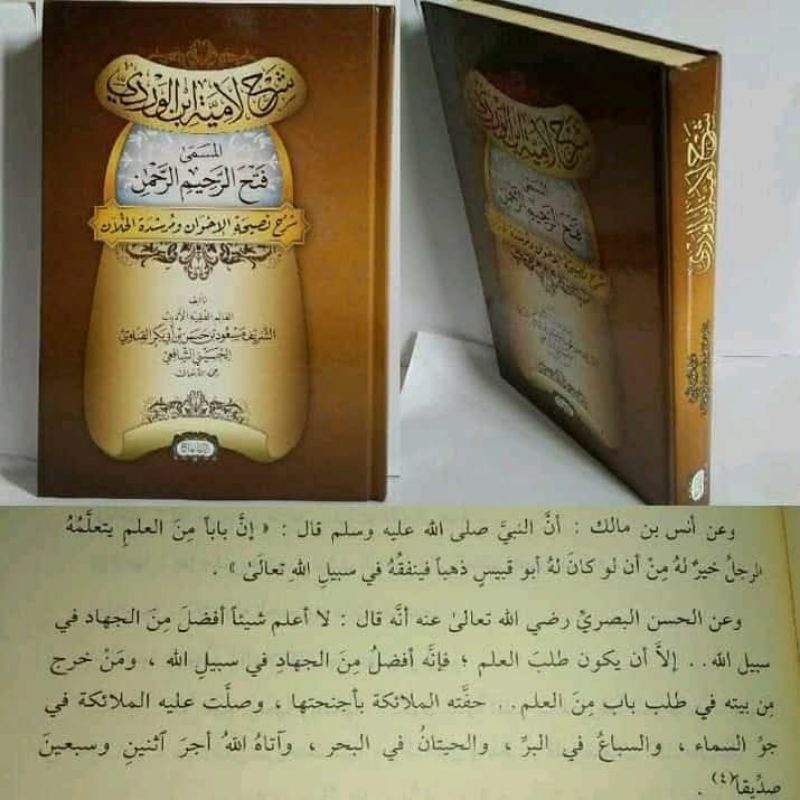 شرح لامية ابن الوردي
المسمى
فتح الرحيم الرحمن
شرح نصيحة الإخوان ومرشدة الخلان
تأليف
العالم الفقيه الأديب
الشريف مسعود بن حسن بن أبي بكر القناوي
الحسيني الشافعي
رحمه الله تعالى
شرح لامية ابن الوردي
المسمى
فتح الرحيم الرحمن
شرح نصيحة الإخوان ومرشدة الخلان
شرح لامية ابن الوردي
وعن أنس بن مالك : أنَّ النبيَّ صلى الله عليه وسلم قال : « إنَّ باباً مِنَ العلمِ يتعلَّمُهُ
الرجلُ خيرٌ لهُ مِنْ أن لو كانَ لهُ أبو قبيسٍ ذهباً فينفقُهُ في سبيلِ اللهِ تعالَىٰ » .
وعن الحسن البصريِّ رضي الله تعالىٰ عنه أنَّه قال : لا أعلم شيئاً أفضلَ مِنَ الجهاد في
سبيل الله . . إلاَّ أن يكون طلبَ العلم ؛ فإنَّه أفضلُ مِنَ الجهادِ في سبيلِ الله ، ومَنْ خرج
مِن بيته في طلب باب مِنَ العلم . . حفَّته الملائكة بأجنحتها ، وصلَّت عليه الملائكة في
جوِّ السماء ، والسباعُ في البرِّ ، والحيتانُ في البحر ، وآتاهُ اللهُ أجرَ ٱثنينِ وسبعينَ
صدِّيقاً(٤) .